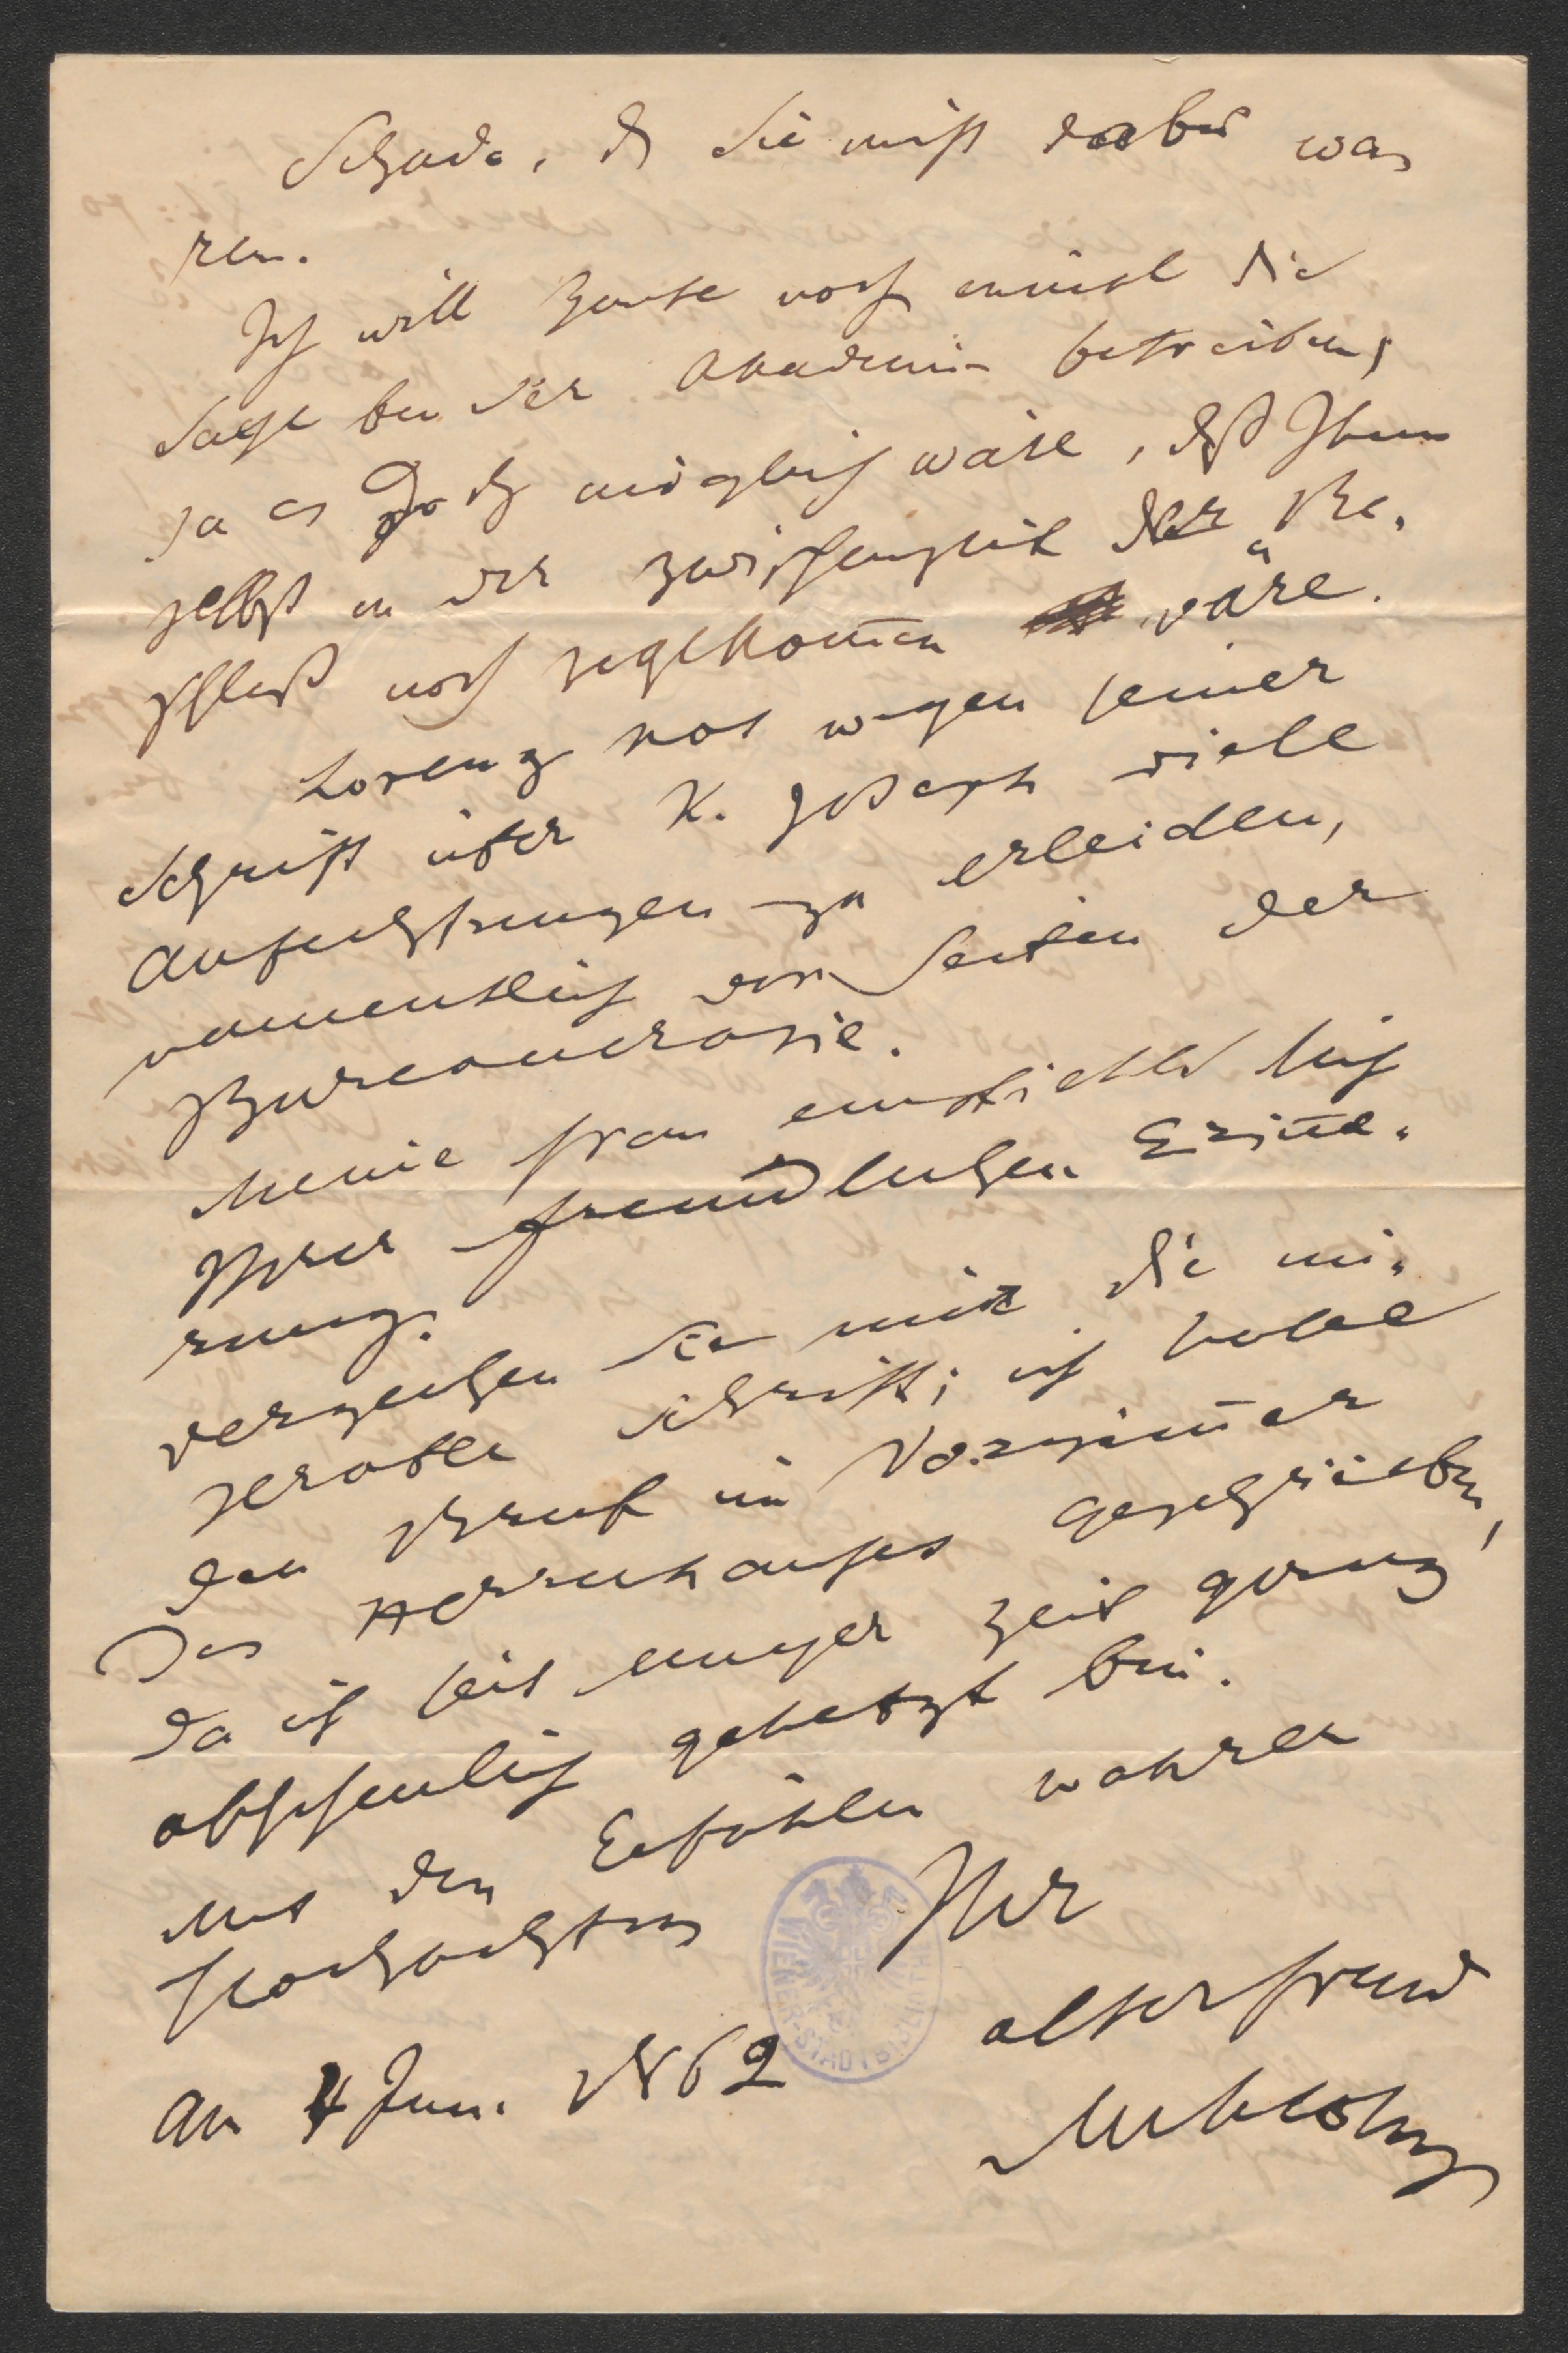 Schade, dß Sie nicht dabei wa
ren.
Ich will heute noch einmal die
Sache bei der Akademie betreiben,
da es doch möglich wäre, dß Ihnen
selbst in der Zwischenzeit der Be-
schluß noch zugekom̅en wäre.
Lorenz hat wegen seiner
Schrift über K. Joseph viele
Anfechtungen zu erleiden,
namentlich von Seiten der
Bureaucratie.
Meine Frau empfiehlt sich
Ihrer freundlichen Erin̅e-
rung.
Verzeihen Sie mir die mi-
serable Schrift; ich habe
den Brief im Vorzim̅er
des Herrenhauses geschrieben,
da ich seit einiger Zeit ganz
abscheulich gehetzt bin.
Mit den Gefühlen wahrer
Hochachtung Ihr
alter Freund
Am 4 Jun. 1862
Miklosich
WIENER STADTBIBLIOTHEK